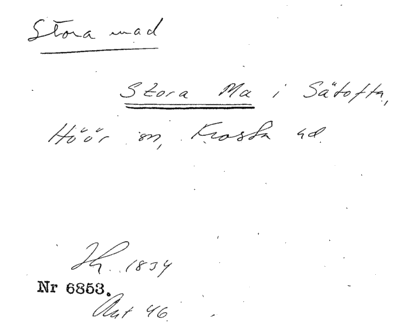 Stora mad
Stora Ma i Sätofta,
Höör sn, Frosta hd
Hz. 1834
Nr 6853.
Ant 46